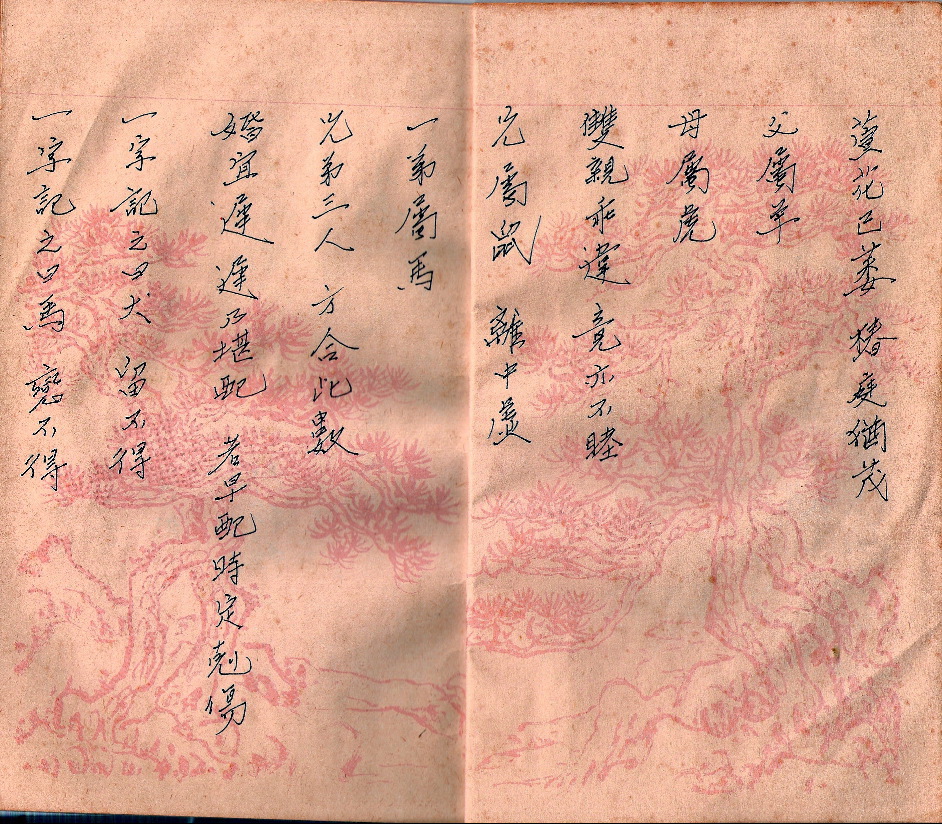 萱花已萎 椿庭猶茂
父屬羊
母屬虎
雙親乖違 竟亦不睦
兄屬鼠 離中虛
一弟屬馬
兄弟三人 方合此數
婚宜遲 遲乃堪配 若早配時定剋傷
一字記之曰犬 留不得
一字記之曰馬 戀不得